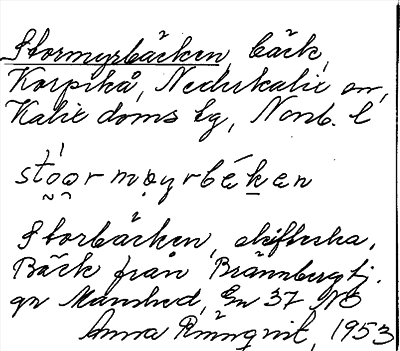 Stormyrbäcken, bäck,
Korpikå, Nederkalix sn,
Kalix doms lg, Norrb. l
sto̰o̰rmy̬rbéken
Storbäcken,
Bäck från Brännbergtj.
gm Manshed, En 37 NO
Anna 1953